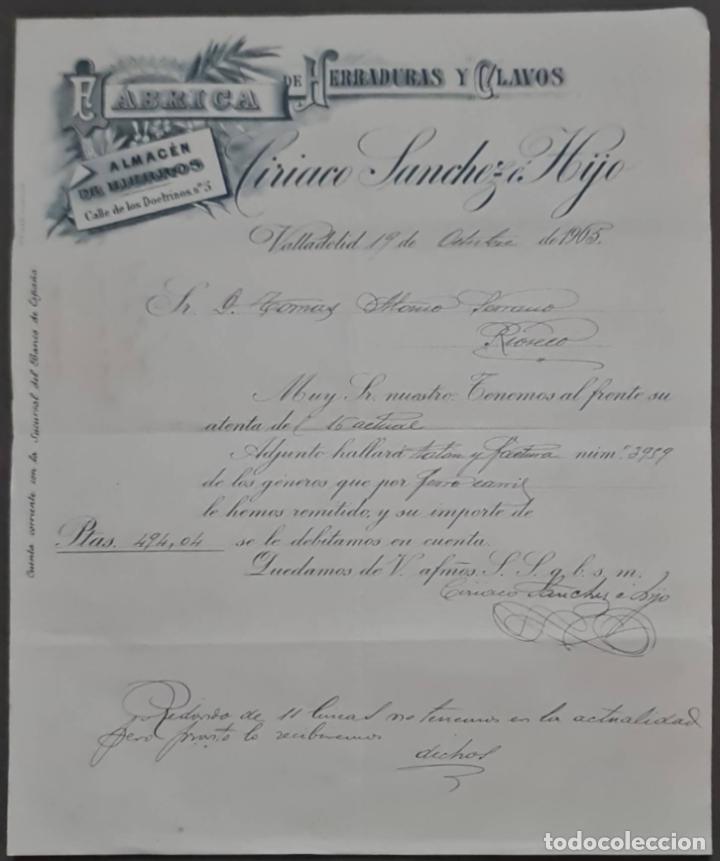 FÁBRICA DE HERRADURAS Y CLAVOS
ALMACÉN
DE HIERROS
Calle de los Doctrinos, nº 5
Ciriaco Sanchez é Hijo
Valladolid 19 de Octubre de 1905.
Sr. D. Tomas Alonso Serrano
Rioseco
Muy Sr. nuestro: Tenemos al frente su
atenta de 16 actual
Adjunto hallará talon y factura núm.
de los géneros que por ferro carril
le hemos remitido, y su importe de
Ptas. 494,04 se le debitamos en cuenta.
Quedamos de V. afmos. S. S. q. b. s. m.
Ciriaco Sanchez é hijo
Redondo de 11 lineas no tenemos en la actualidad
pero pronto lo recibiremos
dichos
Cuenta corriente con la Sucursal del Banco de España
todocoleccion